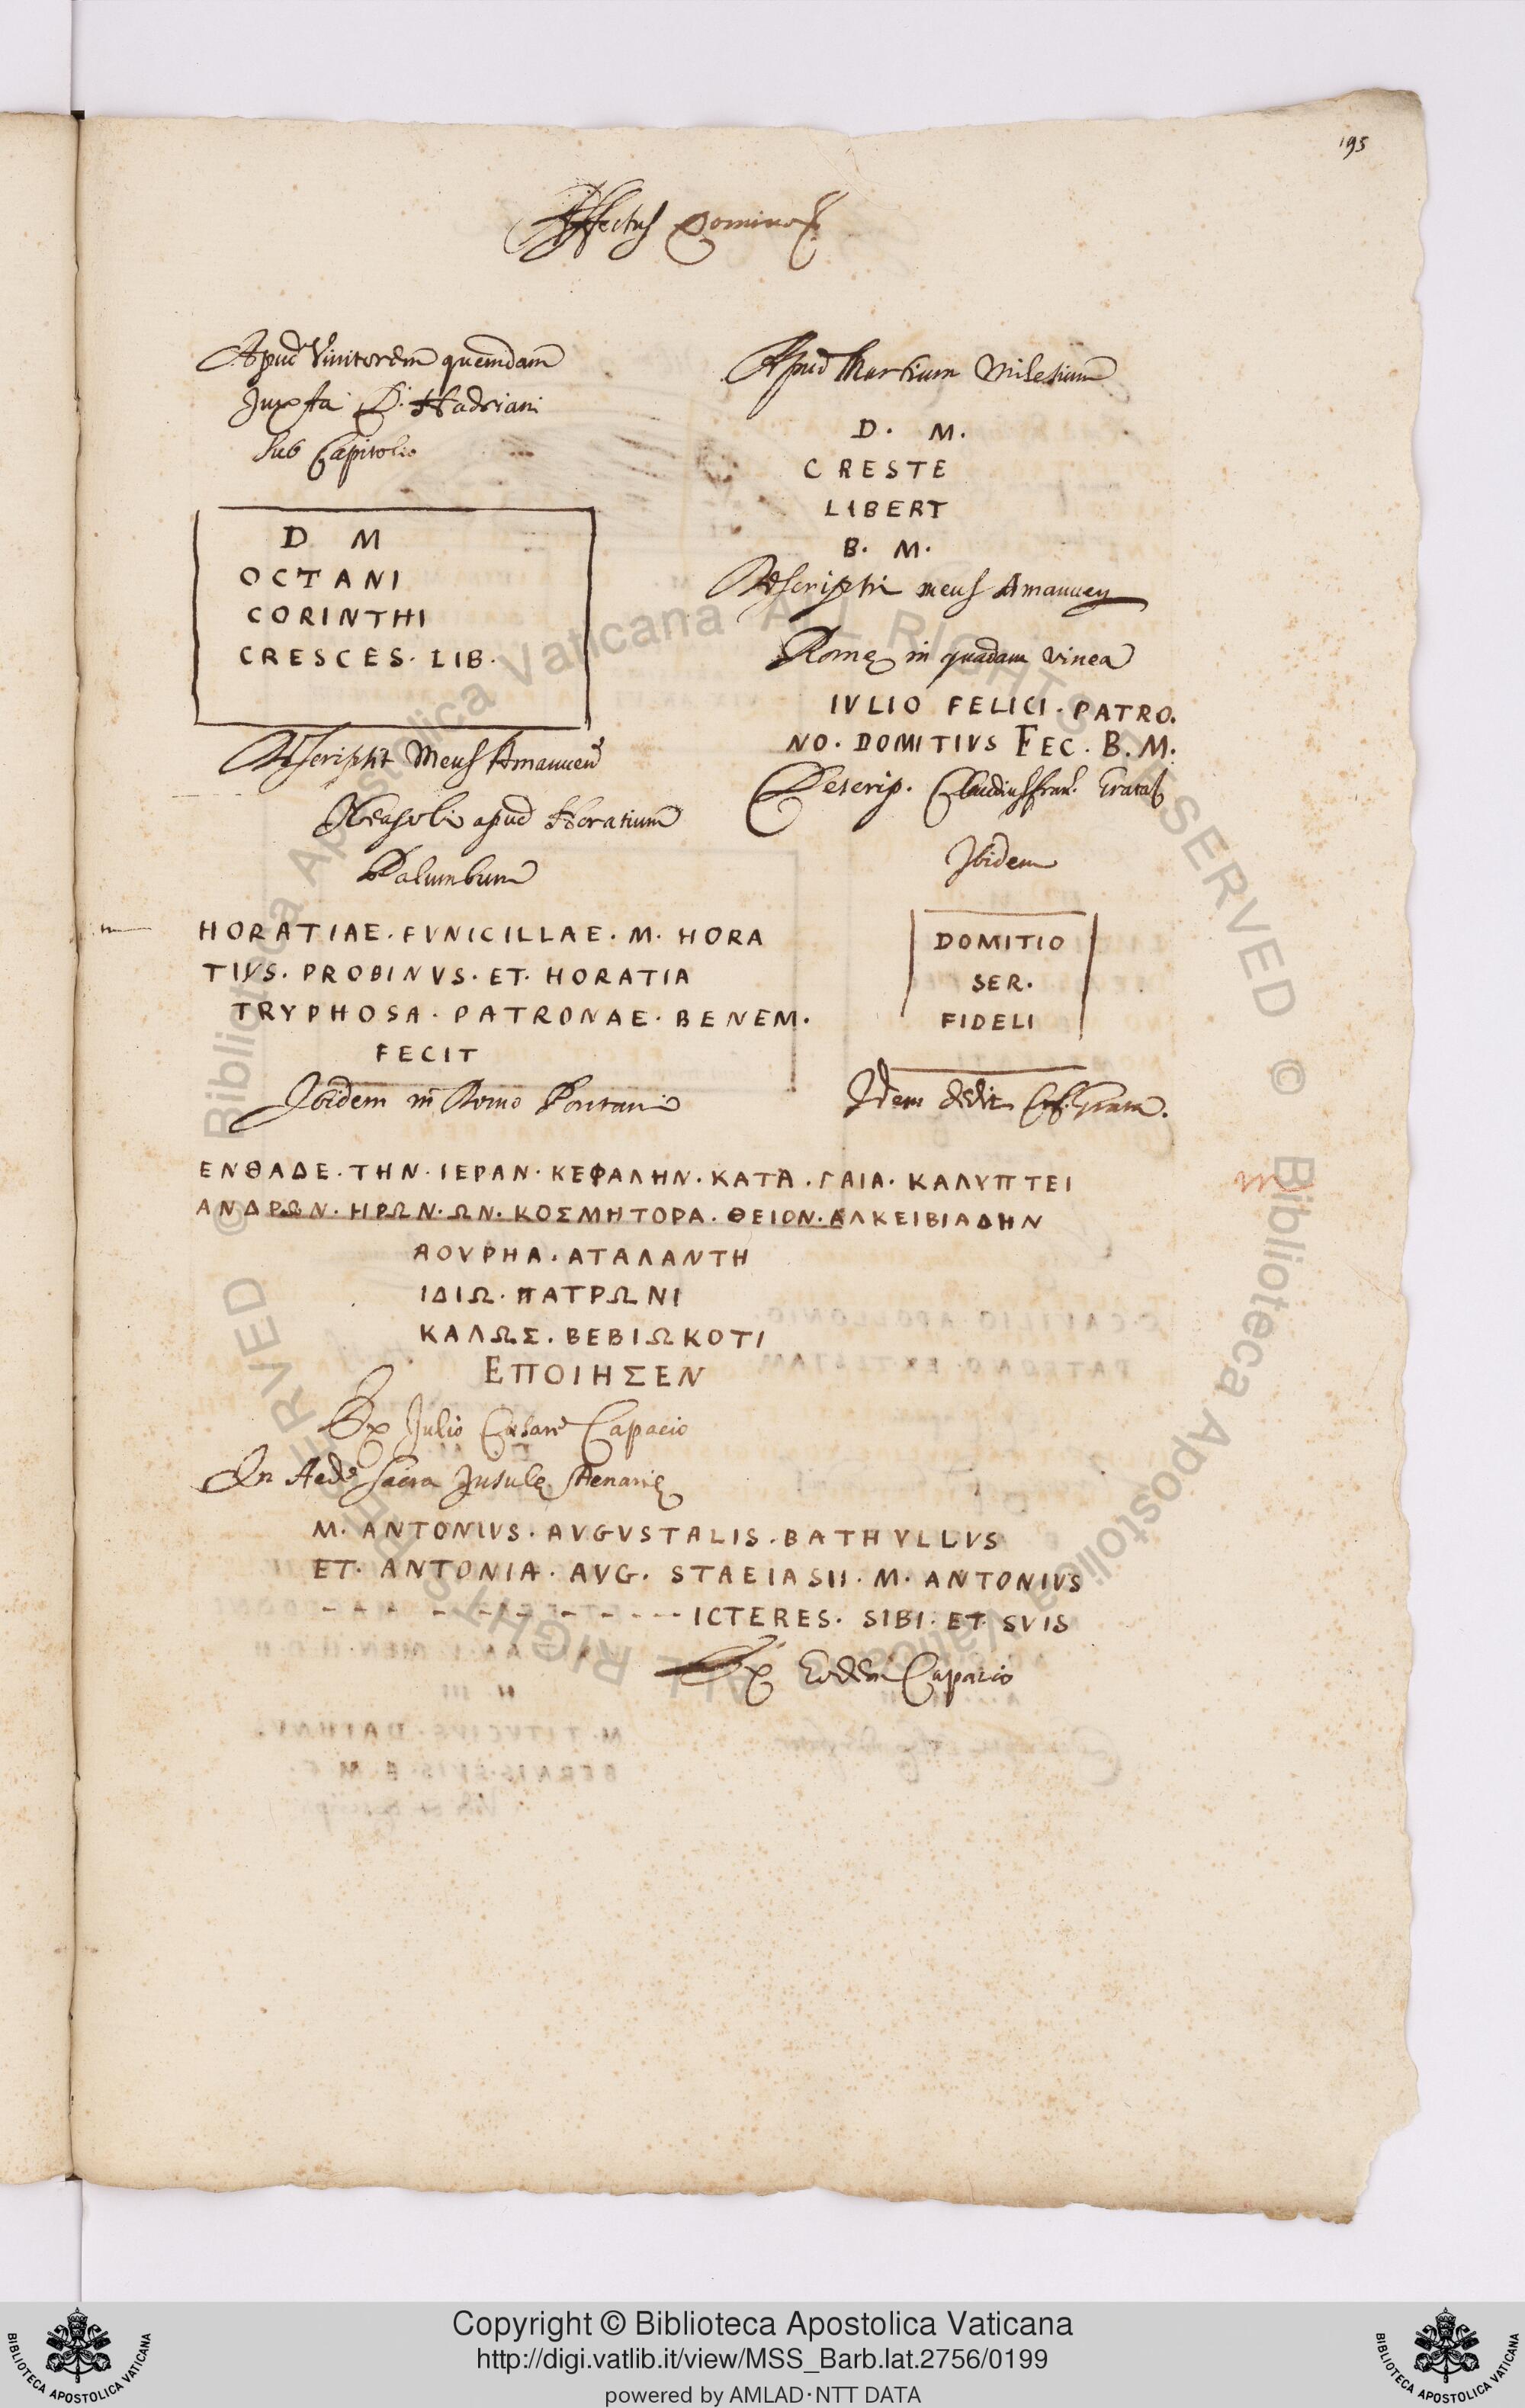 195
Affectus Dominor.
Apud Vinitorem quemdam
Juxta D. Hadriani
sub Capitolio
D M
OCTANI
CORINTHI
CRESCES. LIB.
Adscripsit Meus Amanuen
Neapoli apud Horatium
Palumbum
HORATIAE. FVNICILLAE. M. HORA
TIVS. PROBINVS. ET. HORATIA
TRYPHOSA. PATRONAE. BENEM.
FECIT
Ibidem in Domo Pontani
Apud Martium Milesium
D. M.
CRESTE
LIBERT
B. M.
meus Amanuen
Rome in quadam vinea
IVLIO FELICI. PATRO.
NO. DOMITIVS FEC. B. M.
Descrip. Claudius
Ibidem
DOMITIO
SER.
FIDELI
Idem dedit
ΕΝΘΑΔΕ. ΤΗΝ. ΙΕΡΑΝ. ΚΕΦΑΛΗΝ. ΚΑΤΑ. ΓΑΙΑ. ΚΑΛΥΠΤΕΙ
ΑΝΔΡΩΝ. ΗΡΩΝ. ΩΝ. ΚΟΣΜΗΤΟΡΑ. ΘΕΙΟΝ. ΑΛΚΕΙΒΙΑΔΗΝ
ΑΟΥΡΗΑ. ΑΤΑΛΑΝΤΗ
ΙΔΙΩ. ΠΑΤΡΩΝΙ
ΚΑΛΩΣ. ΒΕΒΙΩΚΟΤΙ
ΕΠΟΙΗΣΕΝ
Ex Julio Cesare Capacio
In Aede sacra Insule Aenarie
M. ANTONIVS. AVGVSTALIS. BATHYLLVS
ET. ANTONIA. AVG. STAEIASII. M. ANTONIVS
- - - - - - - - - - - ICTERES. SIBI. ET. SVIS
Ex Eodem Capacio
© Biblioteca Apostolica Vaticana ALL RIGHTS RESERVED
© Biblioteca Apostolica Vaticana ALL RIGHTS RESERVED
Copyright © Biblioteca Apostolica Vaticana
http://digi.vatlib.it/view/MSS_Barb.lat.2756/0199
powered by AMLAD·NTT DATA
BIBLIOTECA APOSTOLICA VATICANA
BIBLIOTECA APOSTOLICA VATICANA